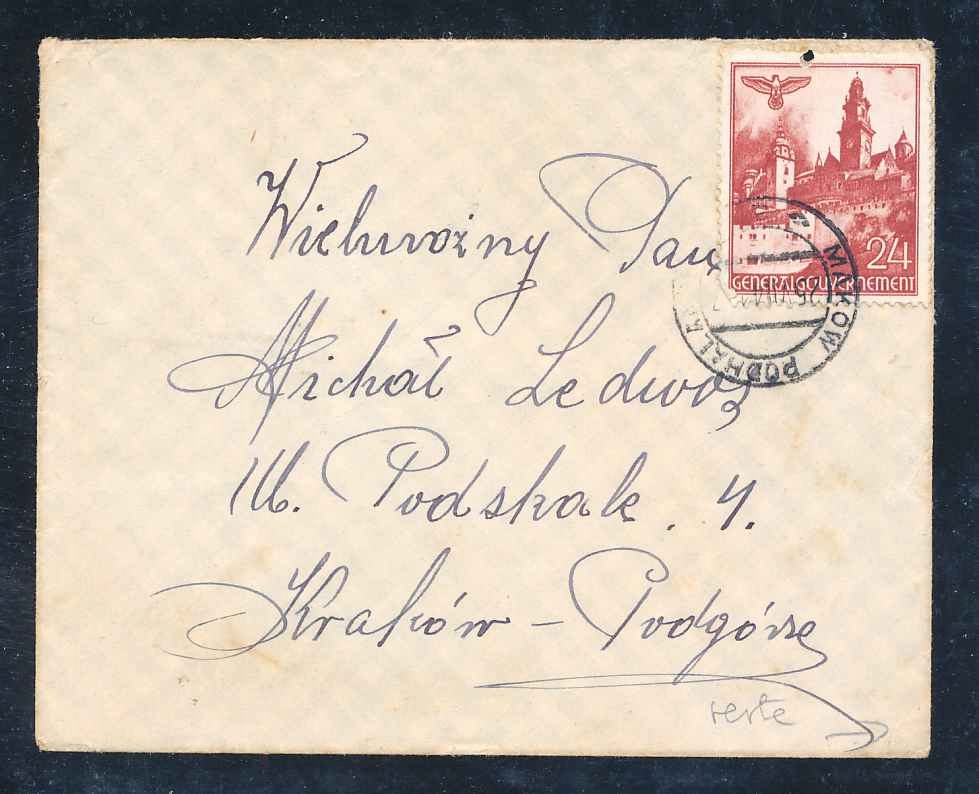 24
GENERALGOUVERNEMENT
MAKÓW PODHAL
Wielmożny Pan
Michał Ledwoż
Ul. Podskale. 4.
Kraków – Podgórze